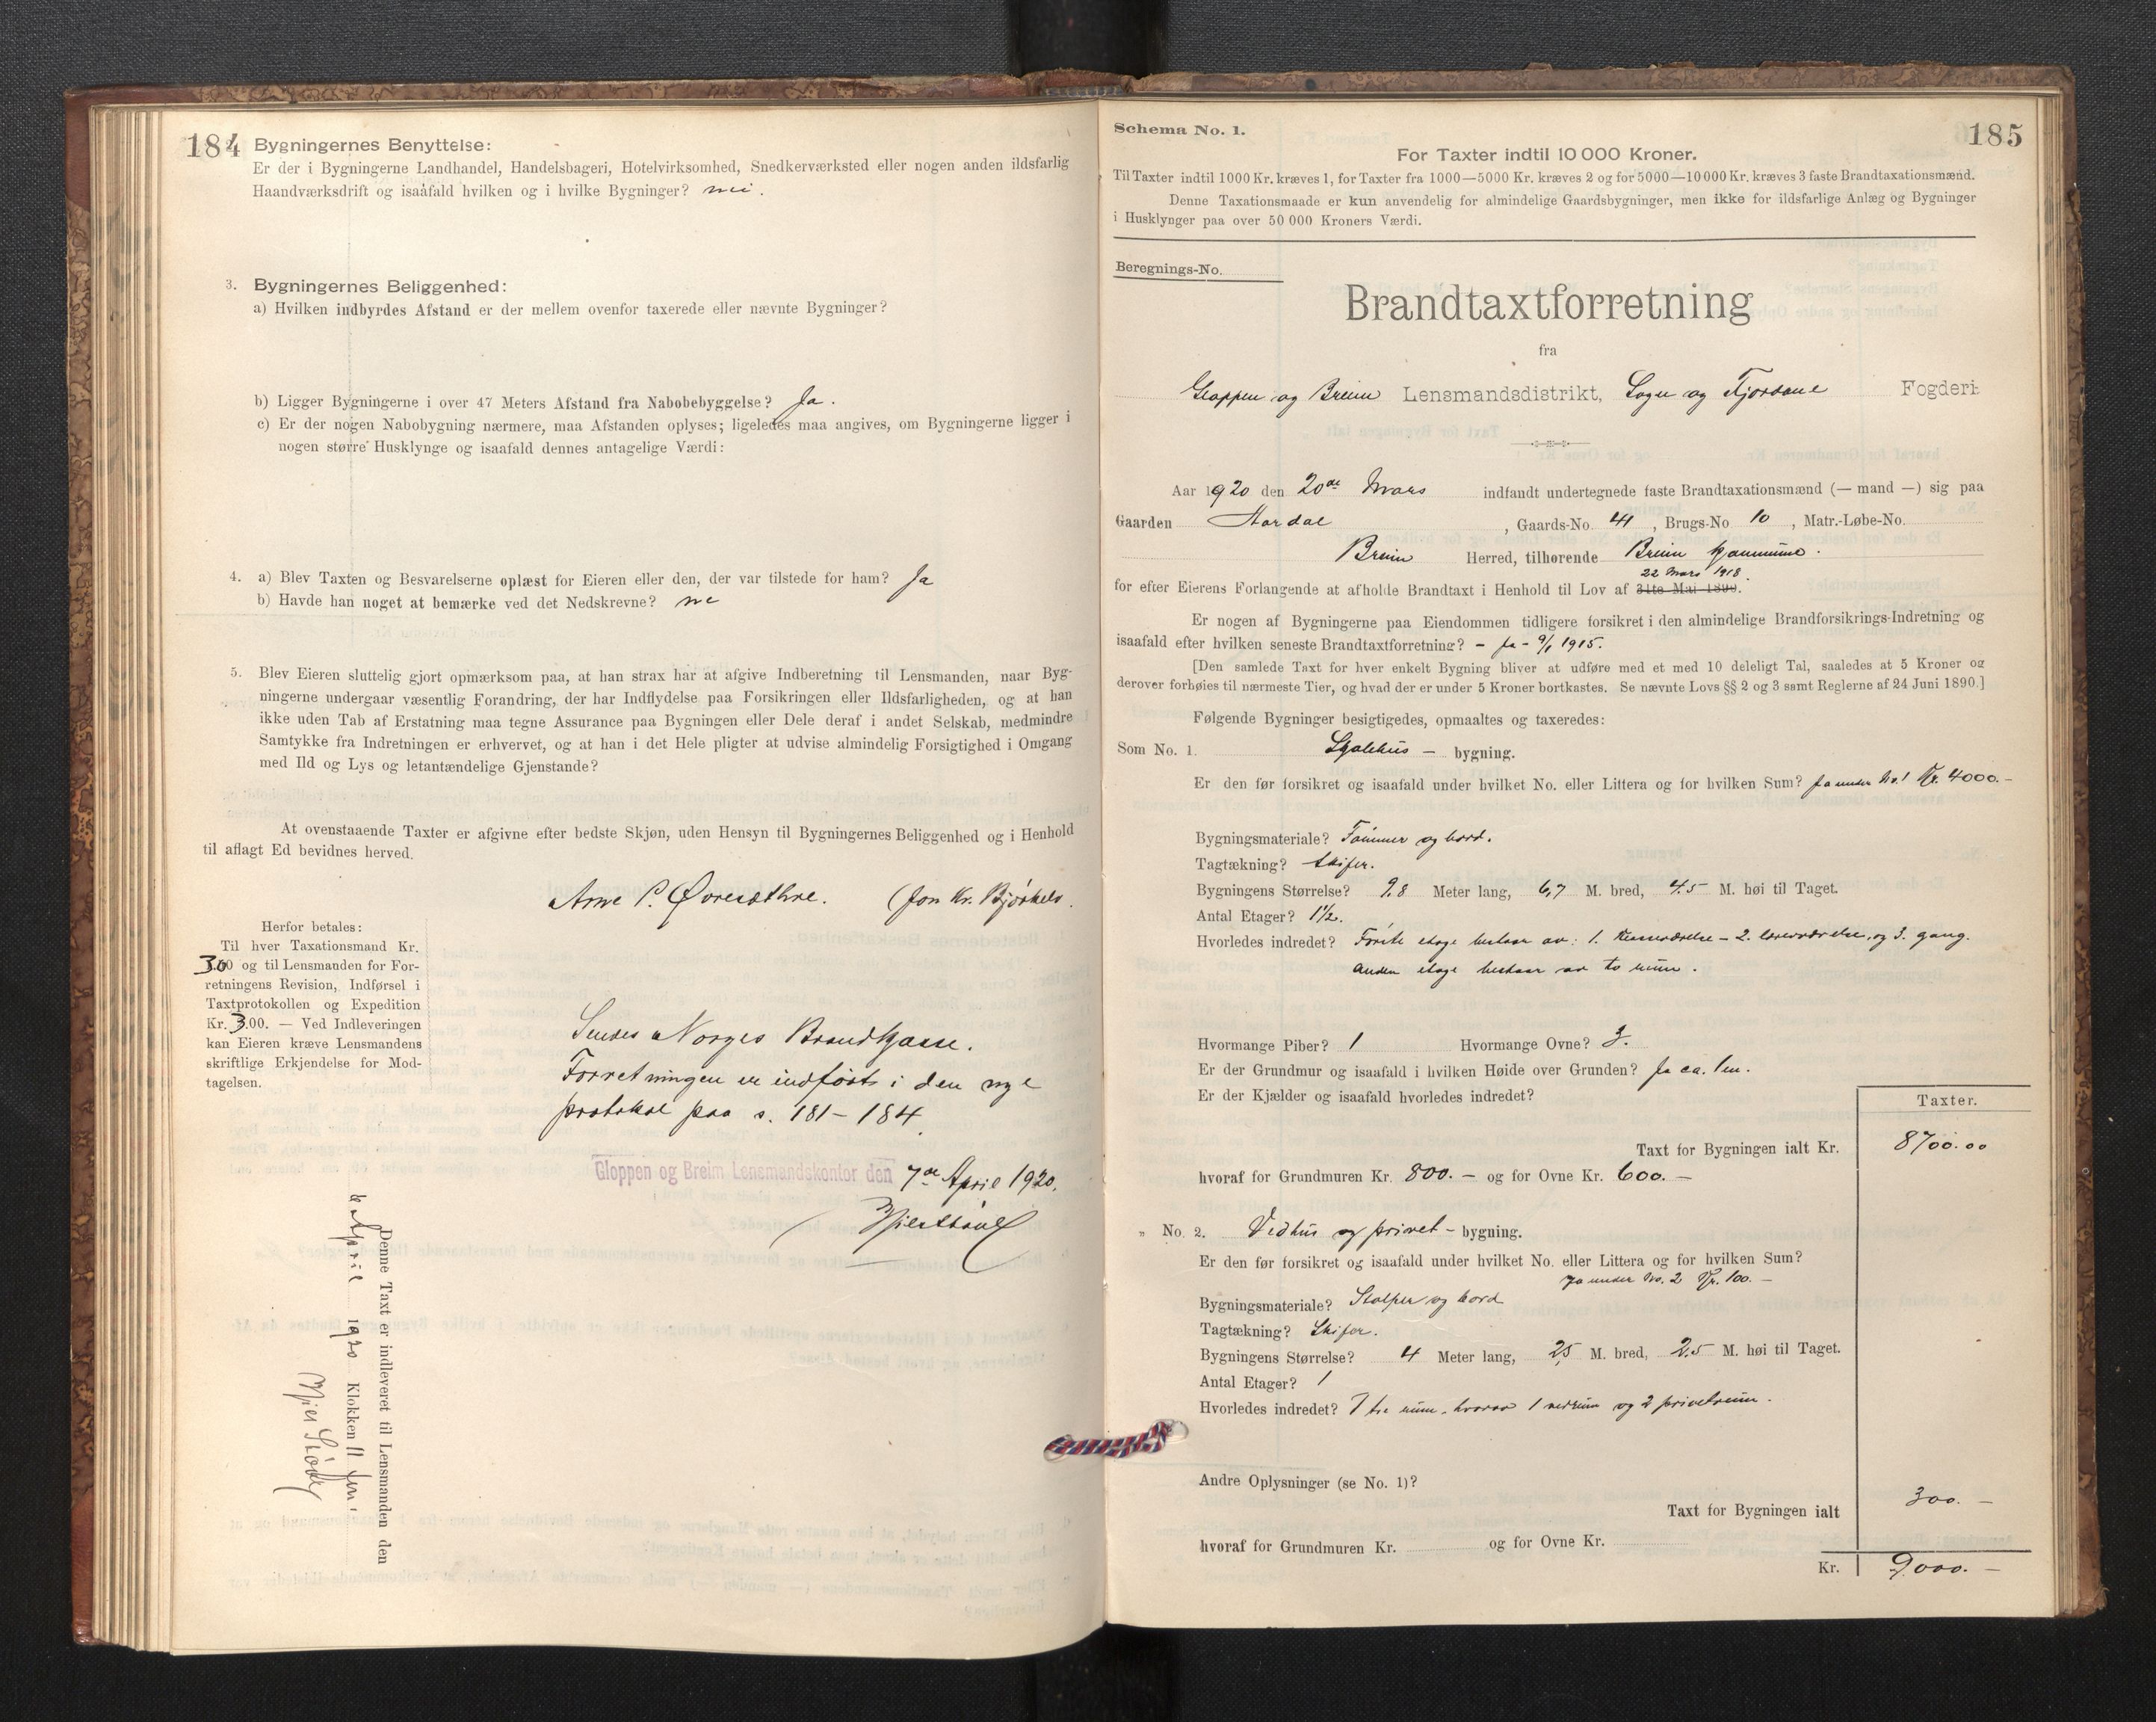 184
Bygningernes Benyttelse:
Er der i Bygningerne Landhandel, Handelsbageri, Hotelvirksomhed, Snedkerværksted eller nogen anden ildsfarlig
Haandværksdrift og isaafald hvilken og i hvilke Bygninger? nei.
3. Bygningernes Beliggenhed:
a) Hvilken indbyrdes Afstand er der mellem ovenfor taxerede eller nævnte Bygninger?
b) Ligger Bygningerne i over 47 Meters Afstand fra Nabobebyggelse? Ja.
c) Er der nogen Nabobygning nærmere, maa Afstanden oplyses; ligeledes maa angives, om Bygningerne ligger i
nogen større Husklynge og isaafald dennes antagelige Værdi:
4. a) Blev Taxten og Besvarelserne oplæst for Eieren eller den, der var tilstede for ham? Ja
b) Havde han noget at bemærke ved det Nedskrevne? nei
5. Blev Eieren sluttelig gjort opmærksom paa, at han strax har at afgive Indberetning til Lensmanden, naar Byg-
ningerne undergaar væsentlig Forandring, der har Indflydelse paa Forsikringen eller Ildsfarligheden, og at han
ikke uden Tab af Erstatning maa tegne Assurance paa Bygningen eller Dele deraf i andet Selskab, medmindre
Samtykke fra Indretningen er erhvervet, og at han i det Hele pligter at udvise almindelig Forsigtighed i Omgang
med Ild og Lys og letantændelige Gjenstande?
At ovenstaaende Taxter er afgivne efter bedste Skjøn, uden Hensyn til Bygningernes Beliggenhed og i Henhold
til aflagt Ed bevidnes herved.
Arne P. Øvresæthre. Jon Kr. Bjørkelo.
Herfor betales:
Til hver Taxationsmand Kr.
30 og til Lensmanden for For-
retningens Revision, Indførsel i
Taxtprotokollen og Expedition
Kr. 3.00. — Ved Indleveringen
kan Eieren kræve Lensmandens
skriftlige Erkjendelse for Mod-
tagelsen.
Sendes Norges Brandkasse.
Forretningen er indført i den nye
protokol paa s. 181-184.
Gloppen og Breim Lensmandskontor den 7de April 1920.
Denne Taxt er indleveret til Lensmanden den
6 April 1920 Klokken 11 fm.
185
Schema No. 1.
For Taxter indtil 10 000 Kroner.
Til Taxter indtil 1000 Kr. kræves 1, for Taxter fra 1000—5000 Kr. kræves 2 og for 5000—10000 Kr. kræves 3 faste Brandtaxationsmænd.
Denne Taxationsmaade er kun anvendelig for almindelige Gaardsbygninger, men ikke for ildsfarlige Anlæg og Bygninger
i Husklynger paa over 50 000 Kroners Værdi.
Beregnings-No.
Brandtaxtforretning
fra
Gloppen og Breim Lensmandsdistrikt, Sogn og Fjordane Fogderi.
Aar 1920 den 20de Mars indfandt undertegnede faste Brandtaxationsmænd (— mand —) sig paa
Gaarden Aardal, Gaards-No. 41, Brugs-No. 10, Matr.-Løbe-No.
Breim Herred, tilhørende Breim kommune.
22 Mars 1918.
for efter Eierens Forlangende at afholde Brandtaxt i Henhold til Lov af 31te Mai 1890.
Er nogen af Bygningerne paa Eiendommen tidligere forsikret i den almindelige Brandforsikrings-Indretning og
isaafald efter hvilken seneste Brandtaxtforretning? - Ja - 9/1 1915.
[Den samlede Taxt for hver enkelt Bygning bliver at udføre med et med 10 deleligt Tal, saaledes at 5 Kroner og
derover forhøies til nærmeste Tier, og hvad der er under 5 Kroner bortkastes. Se nævnte Lovs §§ 2 og 3 samt Reglerne af 24 Juni 1890.]
Følgende Bygninger besigtigedes, opmaaltes og taxeredes:
Som No. 1. Skolehus — bygning.
Er den før forsikret og isaafald under hvilket No. eller Littera og for hvilken Sum? Ja under No. 1 Kr. 4000.-
Bygningsmateriale? Tømmer og bord.
Tagtækning? Skifer.
Bygningens Størrelse? 9,8 Meter lang, 6,7 M. bred, 4.5 M. høi til Taget.
Antal Etager? 1½.
Hvorledes indredet? Første etage bestaar av: 1. klasseværelse - 2. læreværelse, og 3. gang.
Anden etage bestaar av to rum.
Hvormange Piber? 1 Hvormange Ovne? 3.
Er der Grundmur og isaafald i hvilken Høide over Grunden? Ja ca. 1 m.
Er der Kjælder og isaafald hvorledes indredet?
Taxter.
Taxt for Bygningen ialt Kr. 8700.00
hvoraf for Grundmuren Kr. 800.- og for Ovne Kr. 600.-
„ No. 2. Vedhus og privet - bygning.
Er den før forsikret og isaafald under hvilket No. eller Littera og for hvilken Sum?
Ja under No. 2 Kr. 100.-
Bygningsmateriale? Stolper og bord
Tagtækning? Skifer.
Bygningens Størrelse? 4 Meter lang, 2,5 M. bred, 2,5 M. høi til Taget.
Antal Etager? 1
Hvorledes indredet? I tre rum, hvorav 1 vedrum og 2 privetrum.
Andre Oplysninger (se No. 1)?
Taxt for Bygningen ialt 300.-
hvoraf for Grundmuren Kr. og for Ovne Kr.
Kr. 9000.-